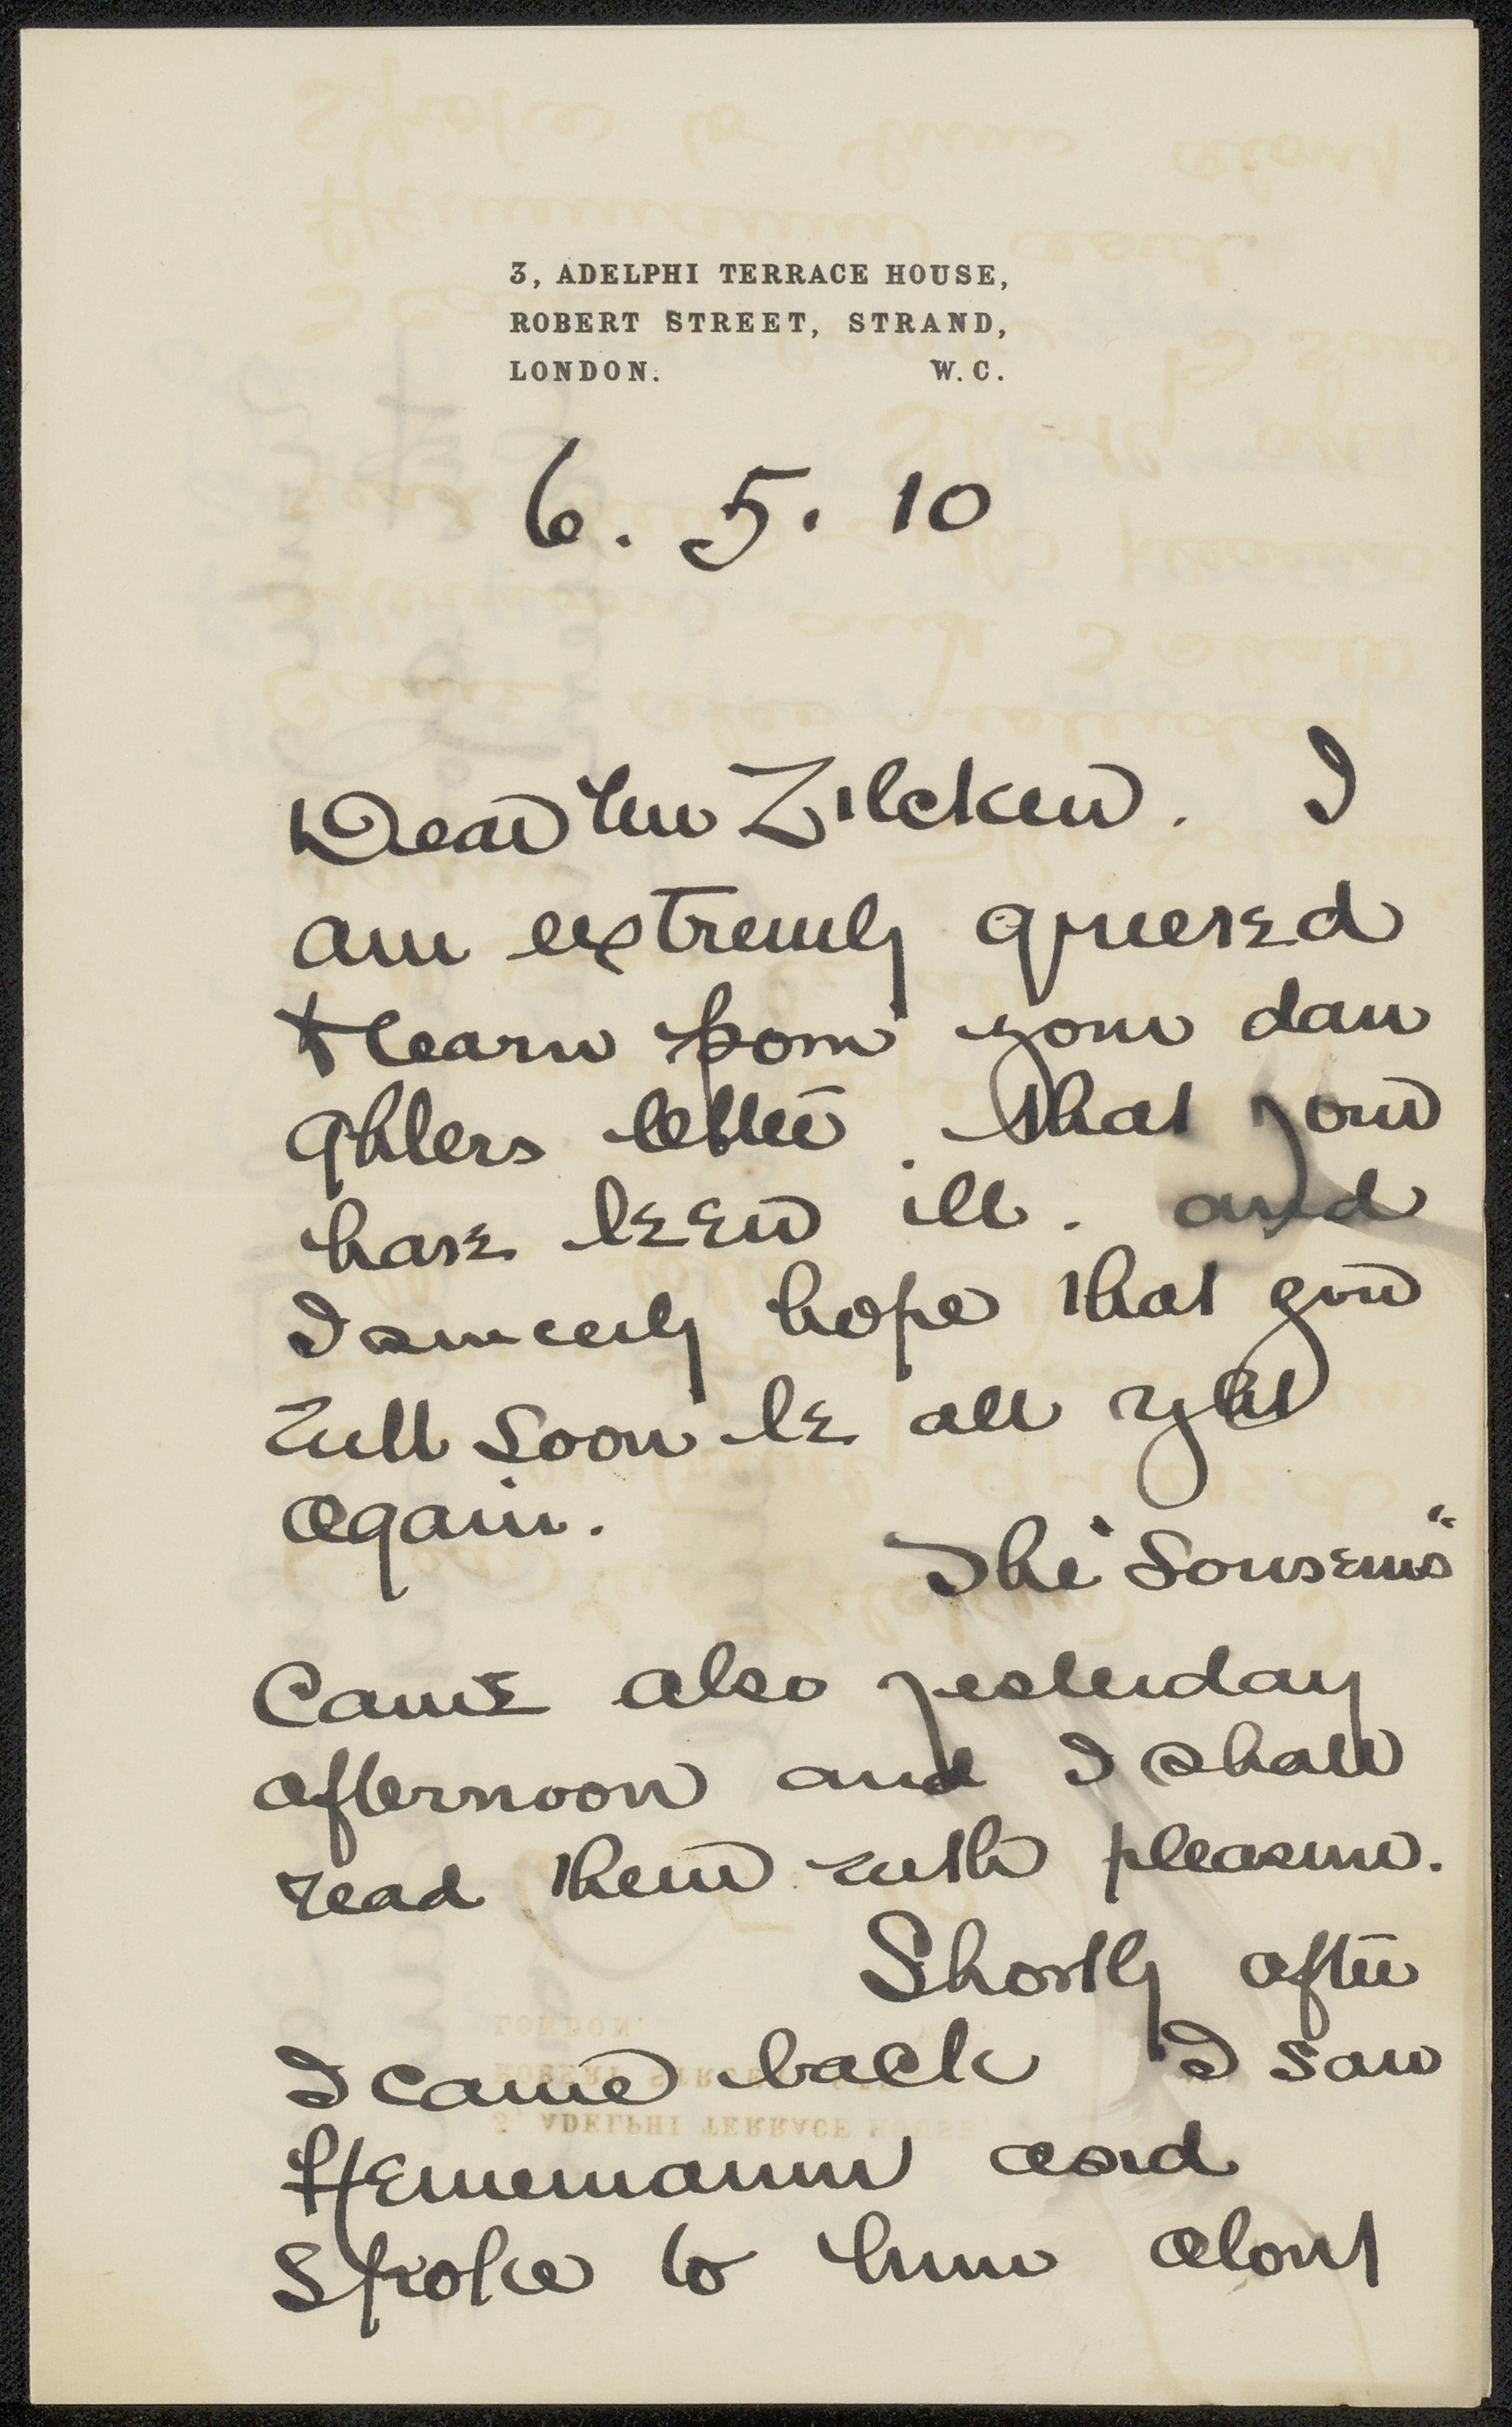 3, ADELPHI TERRACE HOUSE,
ROBERT STREET, STRAND,
LONDON. W.C.
6. 5. 10
Dear Mr Zilcken. I
am extremely grieved
to learn from your dau
ghters letter that you
have been ill. and
I sincerely hope that you
will soon be all right
again.
The "Souvenirs"
came also yesterday
afternoon and I shall
read them with pleasure.
Shortly after
I came back I saw
Heinemann and
spoke to him about